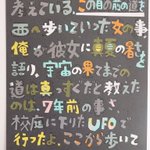 考えている。この目の前の道を
西へ歩いていった女の事
俺が彼女に真夏の昼と
語り、宇宙の果てまでこの
道は真っすぐだと教えた
のは、7年前の事さ
校庭に下りたUFOで
行ったよ、ここから歩いて